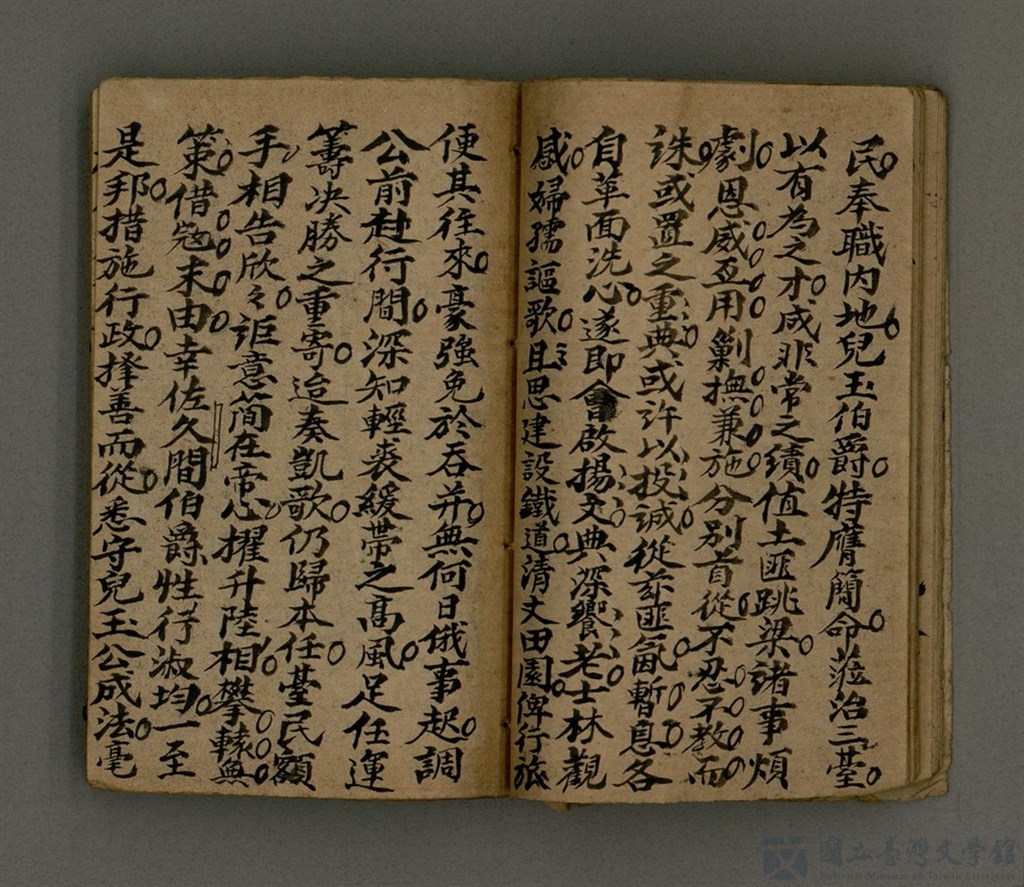 民奉職內地兒玉伯爵特膺簡命蒞治三臺
以有為之才成非常之績值土匪跳梁諸事煩
劇恩威互用剿撫兼施分別首從不忍不教而
誅或置之重典或許以投誠從茲匪氛暫息各
自革面洗心遂即會啟揚文典深饗老士林觀
感婦孺謳歌且思建設鐵道清丈田園俾行旅
便其往來豪強免於吞并無何日俄事起調
公前赴行間深知輕裘緩帶之高風足任運
籌決勝之重寄迨奏凱歌仍歸本任臺民額
手相告欣々詎意簡在帝心擢升陸相攀轅無
策借寇末由幸佐久間伯爵性行淑均一至
是邦措施行政擇善而從悉守兒玉公成法毫
國立臺灣文學館
National Museum of Taiwan Literature